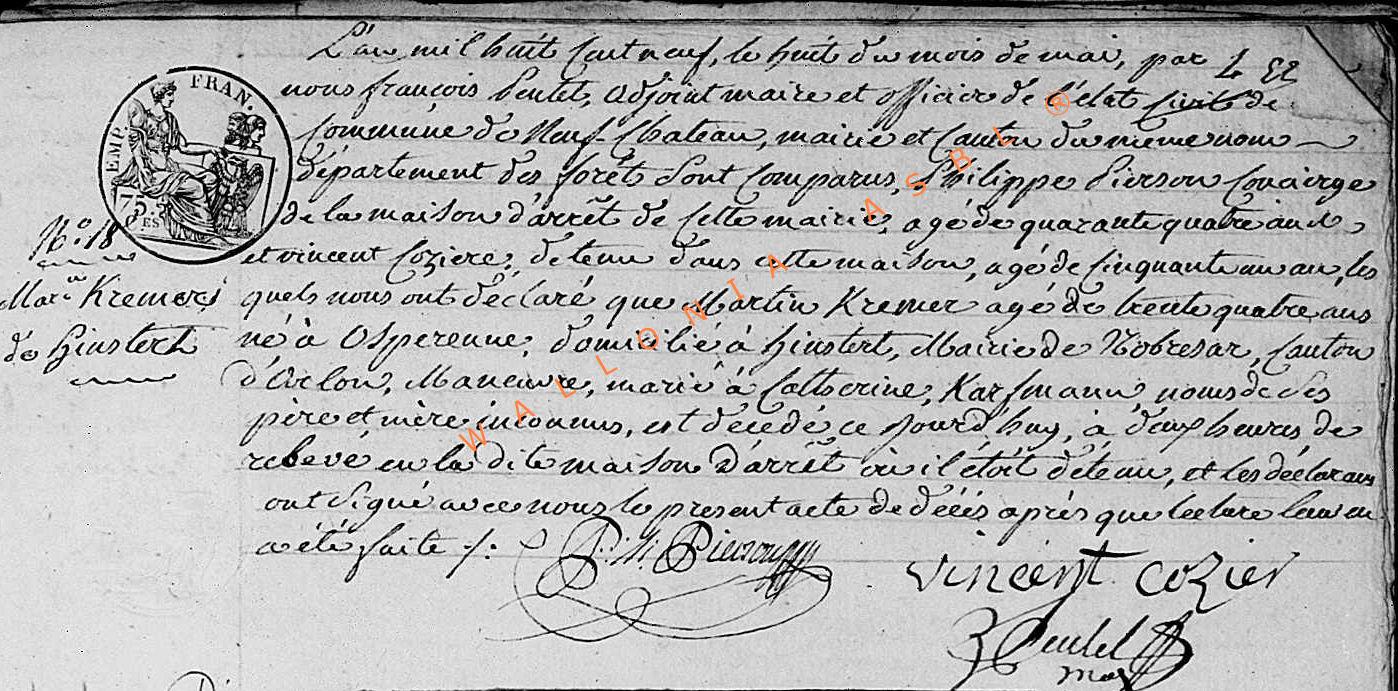 L'an mil huit cent neuf, le huit du mois de mai, par
nous françois Peutet, adjoint maire et officier de l'état civil de
commune de Neuf-Chateau, mairie et Canton du même nom
département des forêts sont comparus, Philippe Pierson Concierge
de la maison d'arrêt de cette mairie, agé de quarante quatre ans
et vincent Coziere, détenu dans cette maison, agé de cinquante un an, les
quels nous ont déclaré que Martin Kremer agé de trente quatre ans
né à Osperenne, domicilié à hinstert, Mairie de Nobresar, Canton
d'Arlon, Maneuvre, marié à Catherine, Karfmann, noms de ses
père et mère inconnus, est décédé ce jourd'huy, à deux heures de
relevé en la dite maison d'arrêt où il étoit détenu, et les déclarans
ont signé avec nous le present acte de décés après que lecture leur en
a été faite ./.
P. h. Pierson
vincent cozier
Peutet
EMP. FRAN.
75
ES
N.º 18
Mar.n Kremer
de hinstert
WALLONIA ASBL ®